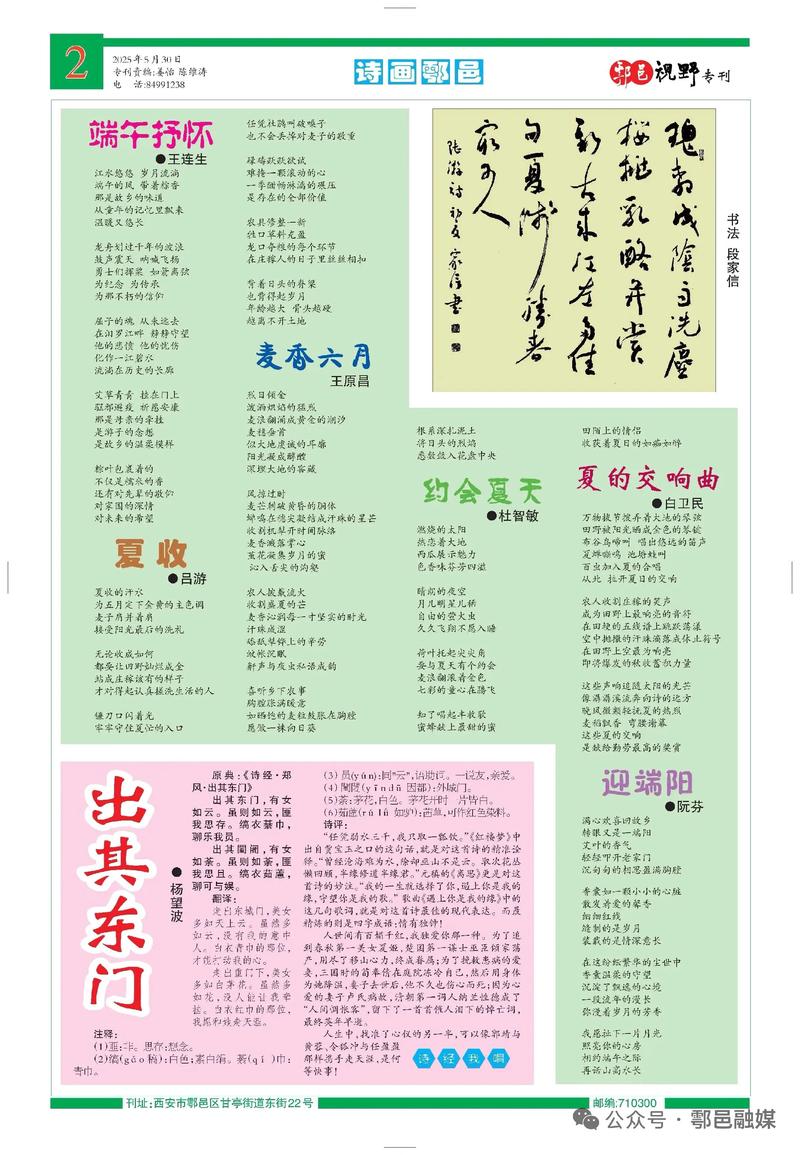 2
2025年5月30日
专刊责编:姜怡 陈维涛
电 话:84991238
诗画鄠邑
鄠邑视野专刊
端午抒怀
●王连生
江水悠悠 岁月流淌
端午的风 带着粽香
那是故乡的味道
从童年的记忆里飘来
温暖又悠长
龙舟划过千年的波浪
鼓声震天 呐喊飞扬
勇士们挥桨 如箭离弦
为纪念 为传承
为那不朽的信仰
屈子的魂 从未远去
在汨罗江畔 静静守望
他的悲愤 他的忧伤
化作一江碧水
流淌在历史的长廊
艾草青青 挂在门上
驱邪避疫 祈愿安康
那是母亲的牵挂
是游子的念想
是故乡的温柔模样
粽叶包裹着的
不仅是糯米的香
还有对先辈的敬仰
对家国的深情
对未来的希望
夏收
●吕游
夏收的汗水
为五月定下金黄的主色调
麦子肩并着肩
接受阳光最后的洗礼
无论收成如何
都要让田野灿烂成金
站成庄稼该有的样子
才对得起认真搓洗生活的人
镰刀口闪着光
牢牢守住夏忙的入口
任凭杜鹃叫破嗓子
也不会丢掉对麦子的敬重
碌碡跃跃欲试
难掩一颗滚动的心
一季酣畅淋漓的碾压
是存在的全部价值
农具修整一新
牲口草料充盈
龙口夺粮的每个环节
在庄稼人的日子里丝丝相扣
背着日头的脊梁
也背得起岁月
年龄越大 骨头越硬
越离不开土地
麦香六月
王原昌
烈日倾金
泼洒炽焰的猛烈
麦浪翻涌成黄金的潮汐
麦穗垂首
似大地虔诚的耳廓
阳光凝成醇醴
深埋大地的窖藏
风掠过时
麦芒刺破黄昏的胴体
蝉鸣在穗尖凝结成汗珠的星芒
收割机犁开时间脉络
麦香溅落掌心
茧花凝集岁月的蜜
沁入舌尖的沟壑
农人披戴流火
收割盛夏的芒
麦香沁润每一寸坚实的时光
汗珠成涩
砥砺犁铧上的辛劳
放怀沉眠
鼾声与夜虫私语成韵
喜听乡下农事
胸膛涨满暖意
如晒饱的麦粒鼓胀在胸膛
愿做一株向日葵
根系深扎泥土
将日头的烈焰
悉数敛入花盘中央
约会夏天
●杜智敏
燃烧的太阳
热恋着大地
西瓜展示魅力
色香味芬芳四溢
晴朗的夜空
月儿明星儿稀
自由的萤火虫
久久飞翔不愿入睡
荷叶托起尖尖角
要与夏天有个约会
麦浪翻滚着金色
七彩的童心在腾飞
知了唱起丰收歌
蜜蜂献上最甜的蜜
田陌上的情侣
收获着夏日的如痴如醉
瑰
成阴雨洗尘
樱桃乳酪并尝新
古来江左多佳句
夏浅胜春
最可人
陆游诗初夏 家信书
书法 段家信
夏的交响曲
●白卫民
万物拔节馈弄着大地的琴弦
田野被阳光晒成金色的琴键
布谷鸟啼叫 唱出悠远的笛声
夏蝉嘶鸣 池塘蛙叫
百虫加入夏的合唱
从此 拉开夏日的交响
农人收割庄稼的笑声
成为田野上最响亮的音符
在田埂的五线谱上跳跃荡漾
空中抛撒的汗珠滴落成休止符号
在田野上空最为响亮
即将爆发的秋收蓄积力量
这些声响追随太阳的光芒
像潺潺溪流奔向诗的远方
晚风微颤轻抚夏的热烈
麦梢飘香 弯腰谢幕
这些夏的交响
是献给勤劳最高的奖赏
迎端阳
●阮芬
满心欢喜回故乡
转眼又是一端阳
艾叶的香气
轻轻叩开老家门
沉甸甸的相思盈满胸膛
香囊如一颗小小的心脏
散发着爱的馨香
细细红线
缝制的是岁月
装载的是情深意长
在这纷纭繁华的尘世中
香囊温柔的守望
沉淀了飘逸的心境
一段流年的漫长
弥漫着岁月的芳香
我愿扯下一片月光
照亮你的心房
相约端午之际
再话山高水长
出其东门
●杨望波
原典:《诗经·郑
风·出其东门》
出其东门,有女
如云。虽则如云,匪
我思存。缟衣綦巾,
聊乐我员。
出其闉闍,有女
如荼。虽则如荼,匪
我思且。缟衣茹藘,
聊可与娱。
翻译:
走出东城门,美女
多如天上云。虽然多
如云,没有我的意中
人。白衣青巾的那位,
才能打动我的心。
走出重门下,美女
多如白茅花。虽然多
如花,没人能让我牵
挂。白衣红巾的那位,
我愿和她走天涯。
注释:
(1)匪:非。思存:想念。
(2)缟(gǎo 稿):白色;素白绢。綦(qí)巾:
青巾。
(3)员(yún):同"云",语助词。一说友,亲爱。
(4)闉闍(yīn dū 因都):外城门。
(5)荼:茅花,白色。茅花开时一片皆白。
(6)茹藘(rú lǘ 如驴):茜草,可作红色染料。
诗评:
"任凭弱水三千,我只取一瓢饮。"《红楼梦》中
出自贾宝玉之口的这句话,就是对这首诗的精准诠
释。"曾经沧海难为水,除却巫山不是云。取次花丛
懒回顾,半缘修道半缘君。"元稹的《离思》更是对这
首诗的妙注。"我的一生就选择了你,遇上你是我的
缘,守望你是我的歌。"歌曲《遇上你是我的缘》中的
这几句歌词,就是对这首诗最佳的现代表达。而最
精炼的则是四字成语:情有独钟!
人世间有百媚千红,我独爱你那一种。为了追
到春秋第一美女夏姬,楚国第一谋士巫臣倾家荡
产,用尽了移山心力,终成眷属;为了挽救患病的爱
妻,三国时的荀奉倩在庭院冻冷自己,然后用身体
为她降温,妻子去世后,他不久也伤心而死;因为心
爱的妻子卢氏病故,清朝第一词人纳兰性德成了
"人间惆怅客",留下了一首首催人泪下的悼亡词,
最终英年早逝。
人生中,找准了心仪的另一半,可以像郭靖与
黄蓉、令狐冲与任盈盈
那样携手走天涯,是何
等快事!
诗经我唱
刊址:西安市鄠邑区甘亭街道东街22号
邮编:710300
公众号·鄠邑融媒